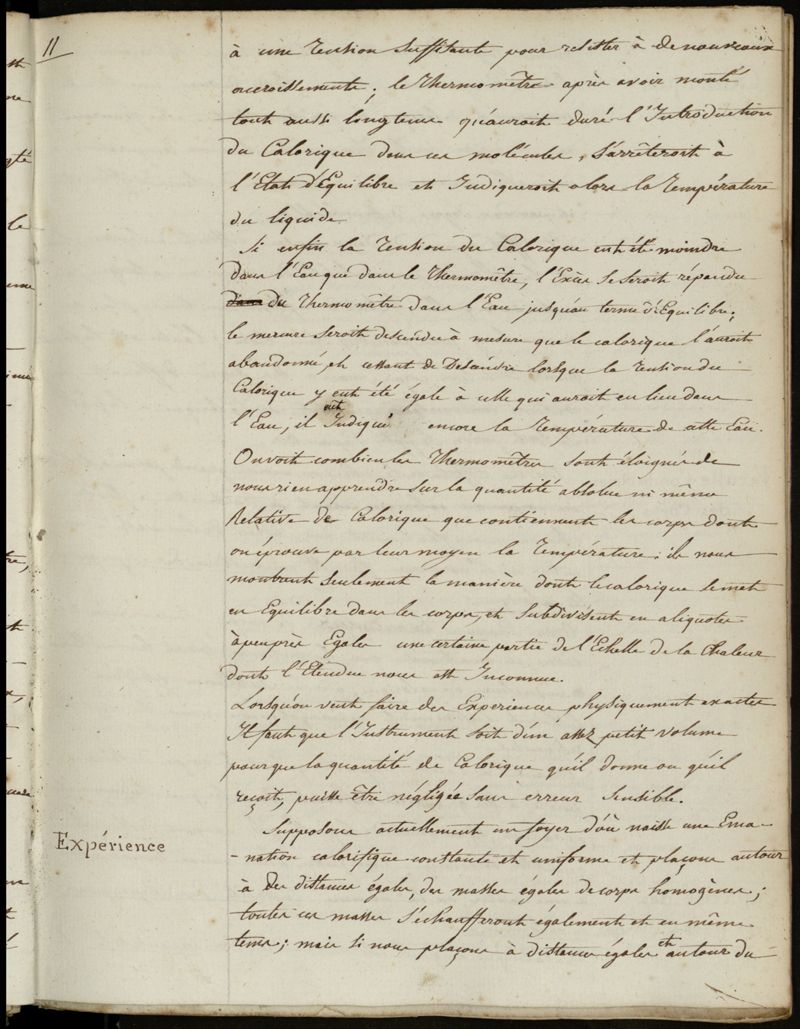 11
à une Tension suffisante pour resister à de nouveaux
accroissements; le Thermomètre après avoir monté
tout aussi longtems qu'auroit duré l'Introduction
du Calorique dans ces molécules, s'arrêteroit à
l'Etat d'Equilibre et Indiqueroit alors la Température
du liquide.
Si enfin la Tension du Calorique eut été moindre
dans l'Eau que dans le Thermomètre, l'Excès se seroit répandu
du Thermomètre dans l'Eau jusqu'au terme d'Equilibre;
le mercure seroit descendu à mesure que le calorique l'auroit
abandonné, et cessant de Descendre lorsque la Tension du
Calorique y eut été égale à celle qui auroit eu lieu dans
l'Eau, il eut Indiqué encore la Température de cette Eau.
On voit combien les Thermomètres sont éloignés de
nous rien apprendre sur la quantité absolue ni même
Relative de Calorique que contiennent les corps dont
on éprouve par leur moyen la Température: ils nous
montrent seulement la manière dont le calorique se met
en Equilibre dans les corps, et subdivisent en aliquotes
à peu près Egales une certaine partie de l'Echelle de la Chaleur
dont l'Etendue nous est Inconnue.
Lorsqu'on veut faire des Experiences physiquement exactes
Il faut que l'Instrument soit d'un assez petit volume
pour que la quantité de Calorique qu'il donne ou qu'il
reçoit, puisse être négligée sans erreur sensible.
Expérience
Supposons actuellement un foyer d'où naisse une Ema-
-nation calorifique constante et uniforme et plaçons autour
à des distances égales, des masses égales de corps homogènes;
toutes ces masses s'échaufferont également et en même
tems; mais si nous plaçons à distances égales et autour du